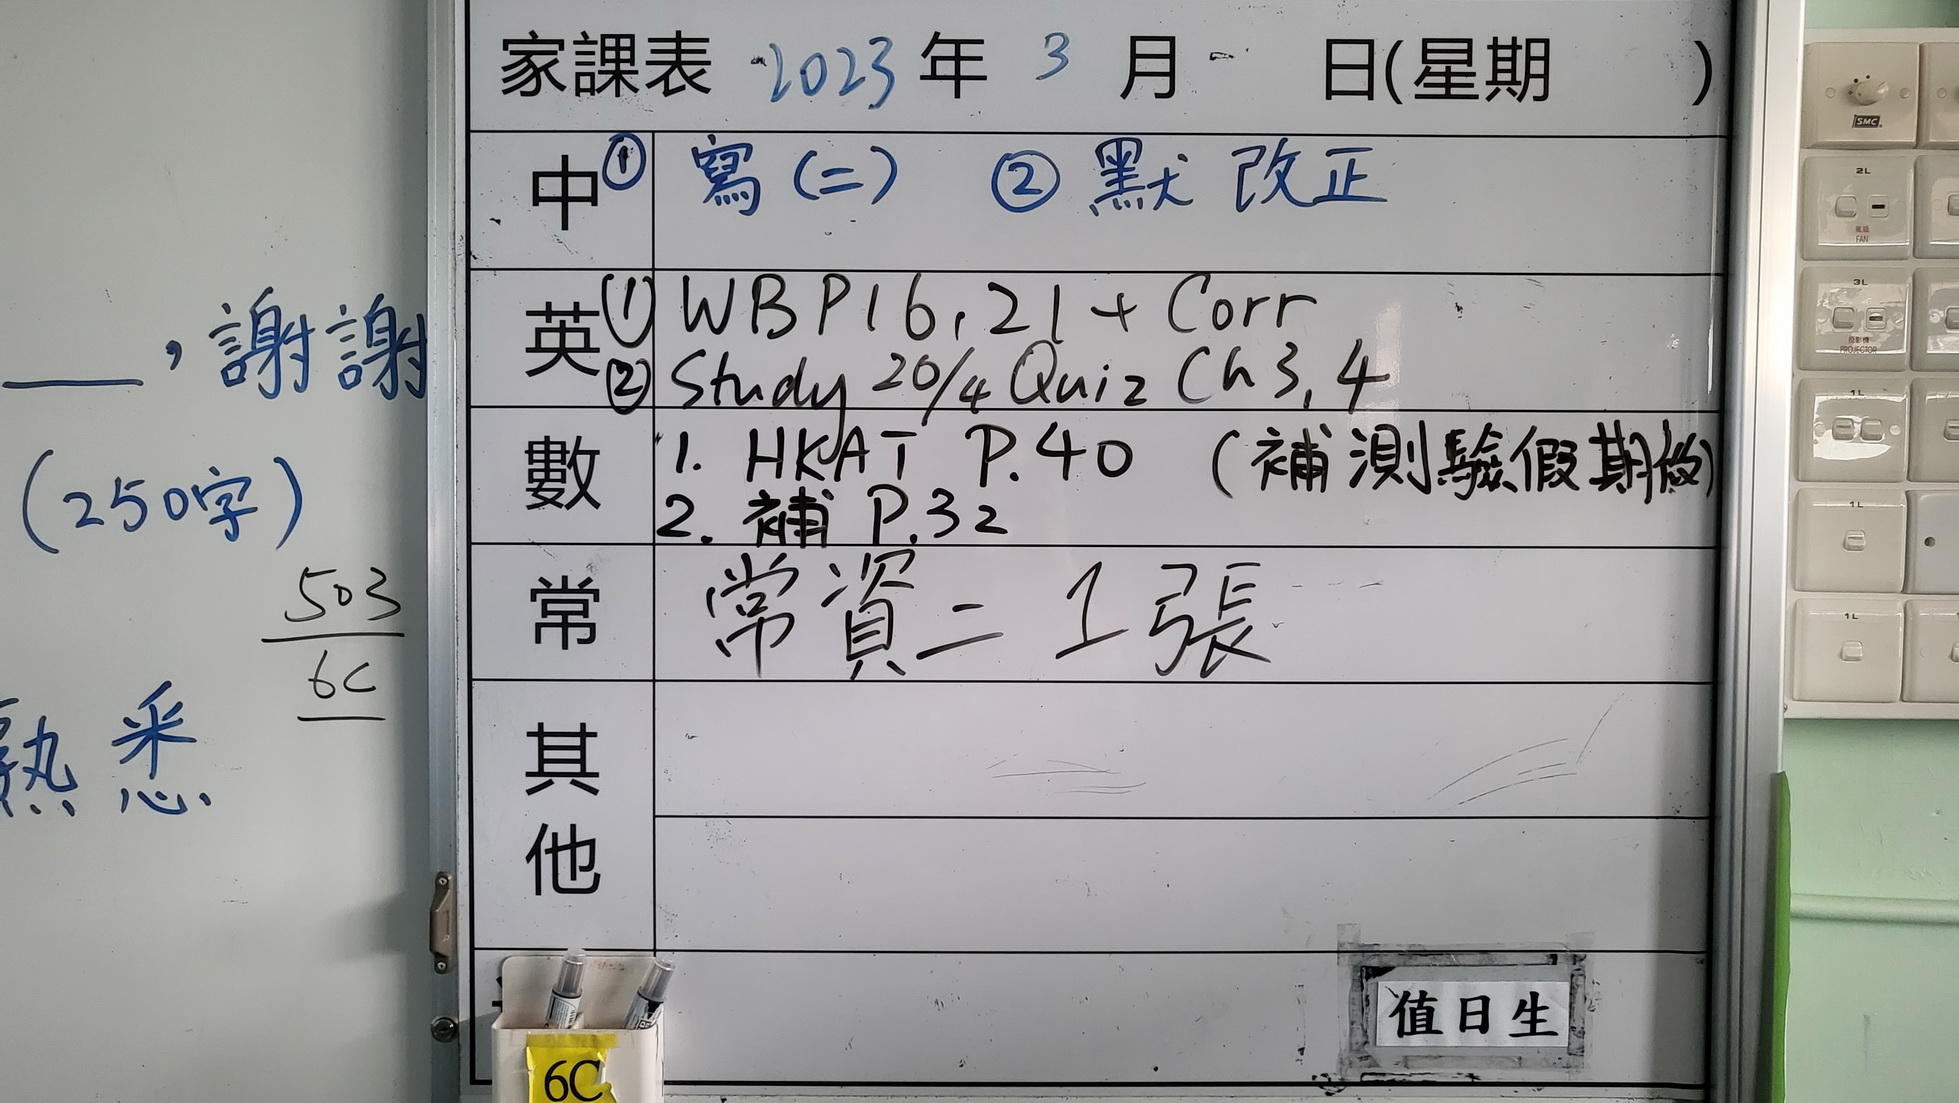 家課表 2023年 3 月 日(星期 )
中 ① 寫(二) ② 默 改正
英 ① WB P16, 21 + Corr
② Study 20/4 Quiz Ch 3, 4
數 1. HKAT P.40 (補測驗假期做)
2. 補 P.32
常 常資二 1張
其他
值日生
6C
, 謝謝
(250字)
503
6C
熟悉
SMC
2L
風扇
FAN
3L
投影機
PROJECTOR
1L
1L
1L